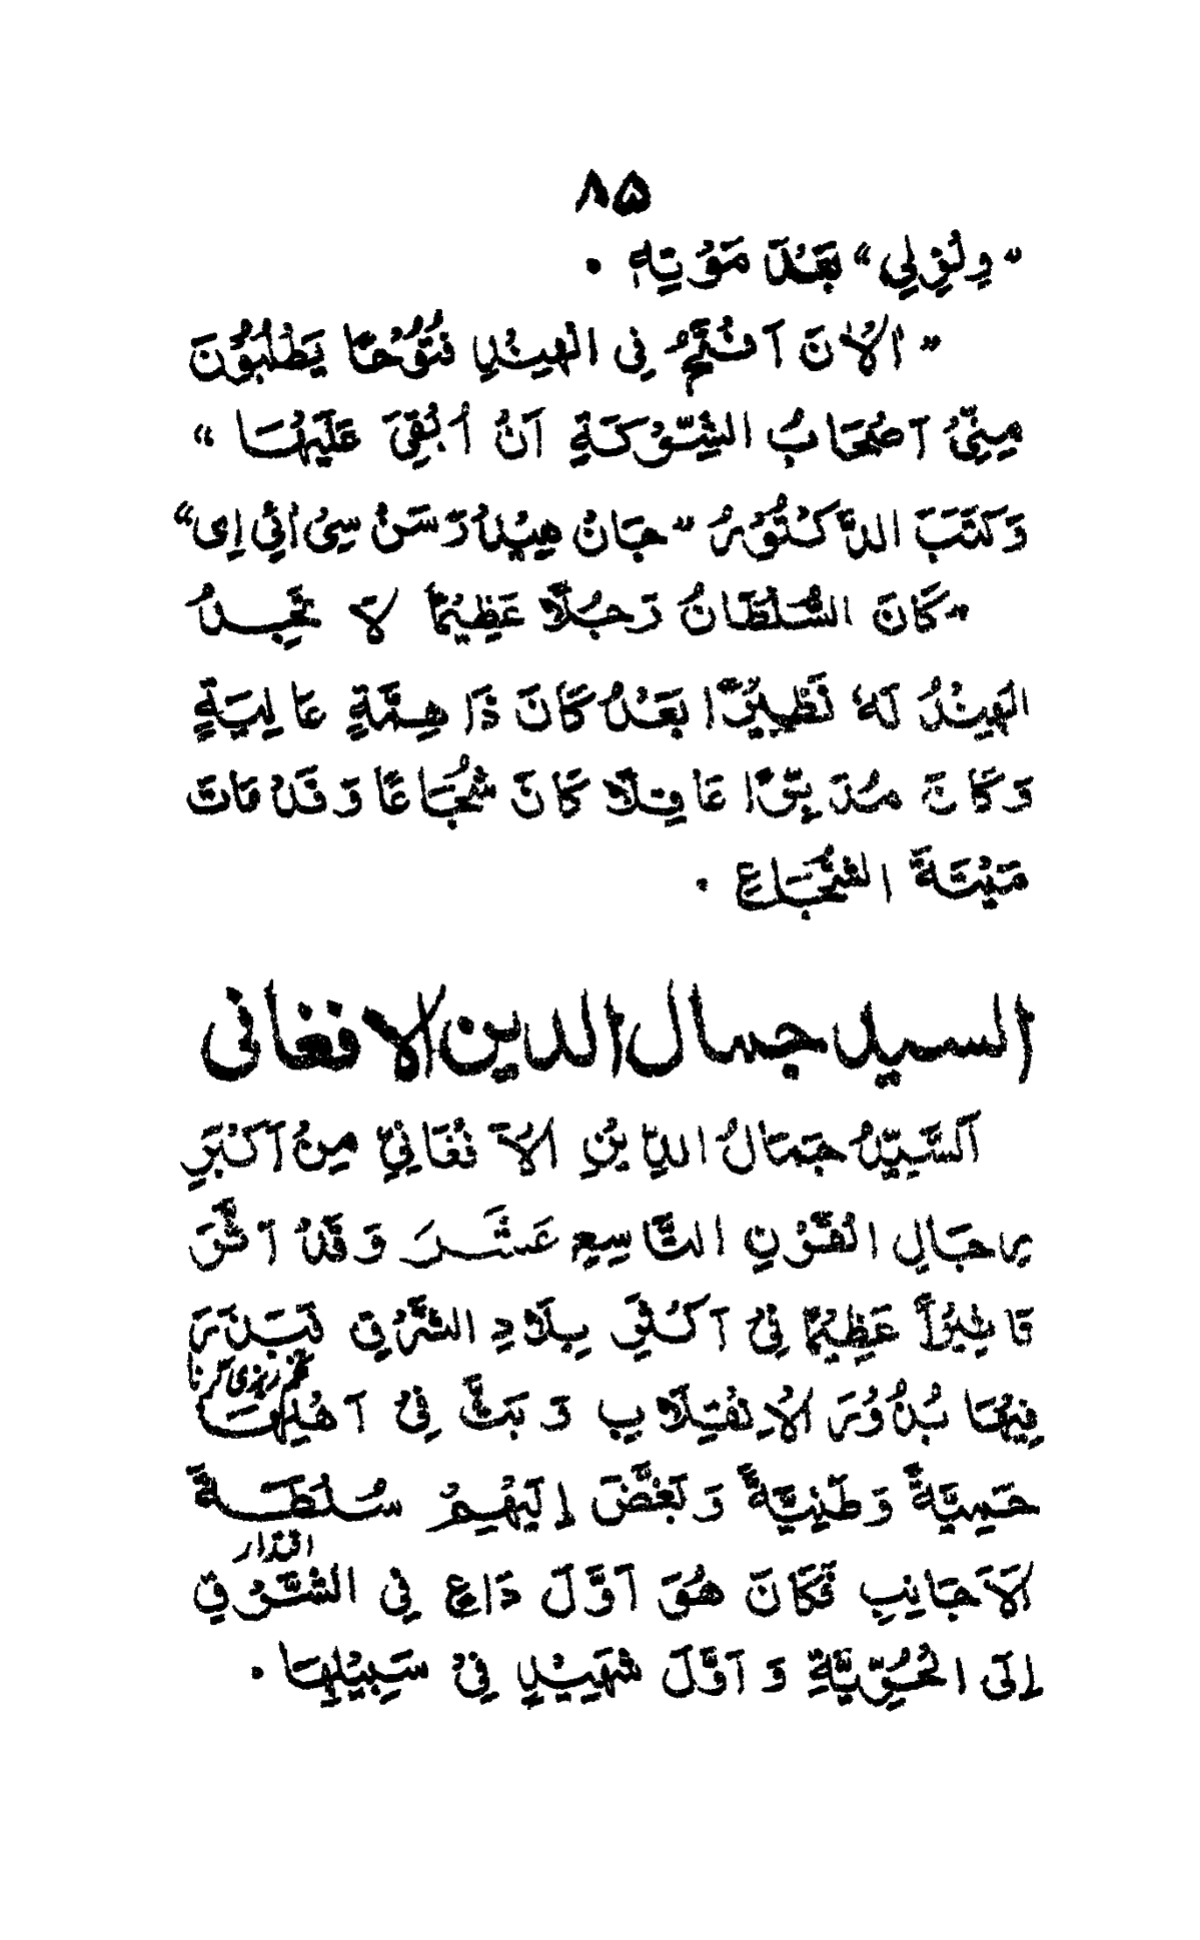 ۸۵
”وِلْزلِي“ بَعْدَ مَوْتِهٖ ۰
”اَلْاٰنَ اَفْتَحُ فِي الْهِنْدِ فُتُوْحًا يَطْلُبُوْنَ
مِنِّيْ اَصْحَابُ الشَّوْكَةِ اَنْ اُبْقِيَ عَلَيْهَا“
وَكَتَبَ الدَّكْتُوْرُ ”جَانْ هِيْنْدَرْسَنْ سِيْ اٰئِي اِي“
”كَانَ السُّلْطَانُ رَجُلًا عَظِيْمًا لَا تَجِدُ
الْهِنْدُ لَهٗ نَظِيْرًا بَعْدُ كَانَ ذَا هِمَّةٍ عَالِيَةٍ
وَكَانَ مُدَبِّرًا عَاقِلًا كَانَ شُجَاعًا وَقَدْ مَاتَ
مَيْتَةَ الشُّجَاعِ ۰
السيد جمال الدين الافغانى
اَلسَّيِّدُ جَمَالُ الدِّيْنِ الْاَفْغَانِيِّ مِنْ اَكْبَرِ
رِجَالِ الْقَرْنِ التَّاسِعِ عَشَرَ وَقَدْ اَثَّرَ
تَاثِيْرًا عَظِيْمًا فِيْ اَكْثَرِ بِلَادِ الشَّرْقِ فَبَذَرَ
تخم ریزی کرنا
فِيْهَا بُذُوْرَ الْاِنْقِلَابِ وَ بَثَّ فِيْ اَهْلِهَا
حَمِيَّةً وَطَنِيَّةً وَ بَغَّضَ اِلَيْهِمْ سُلْطَةَ
اقتدار
الْاَجَانِبِ فَكَانَ هُوَ اَوَّلَ دَاعٍ فِي الشَّرْقِ
اِلَى الْحُرِّيَّةِ وَ اَوَّلَ شَهِيْدٍ فِيْ سَبِيْلِهَا ۰